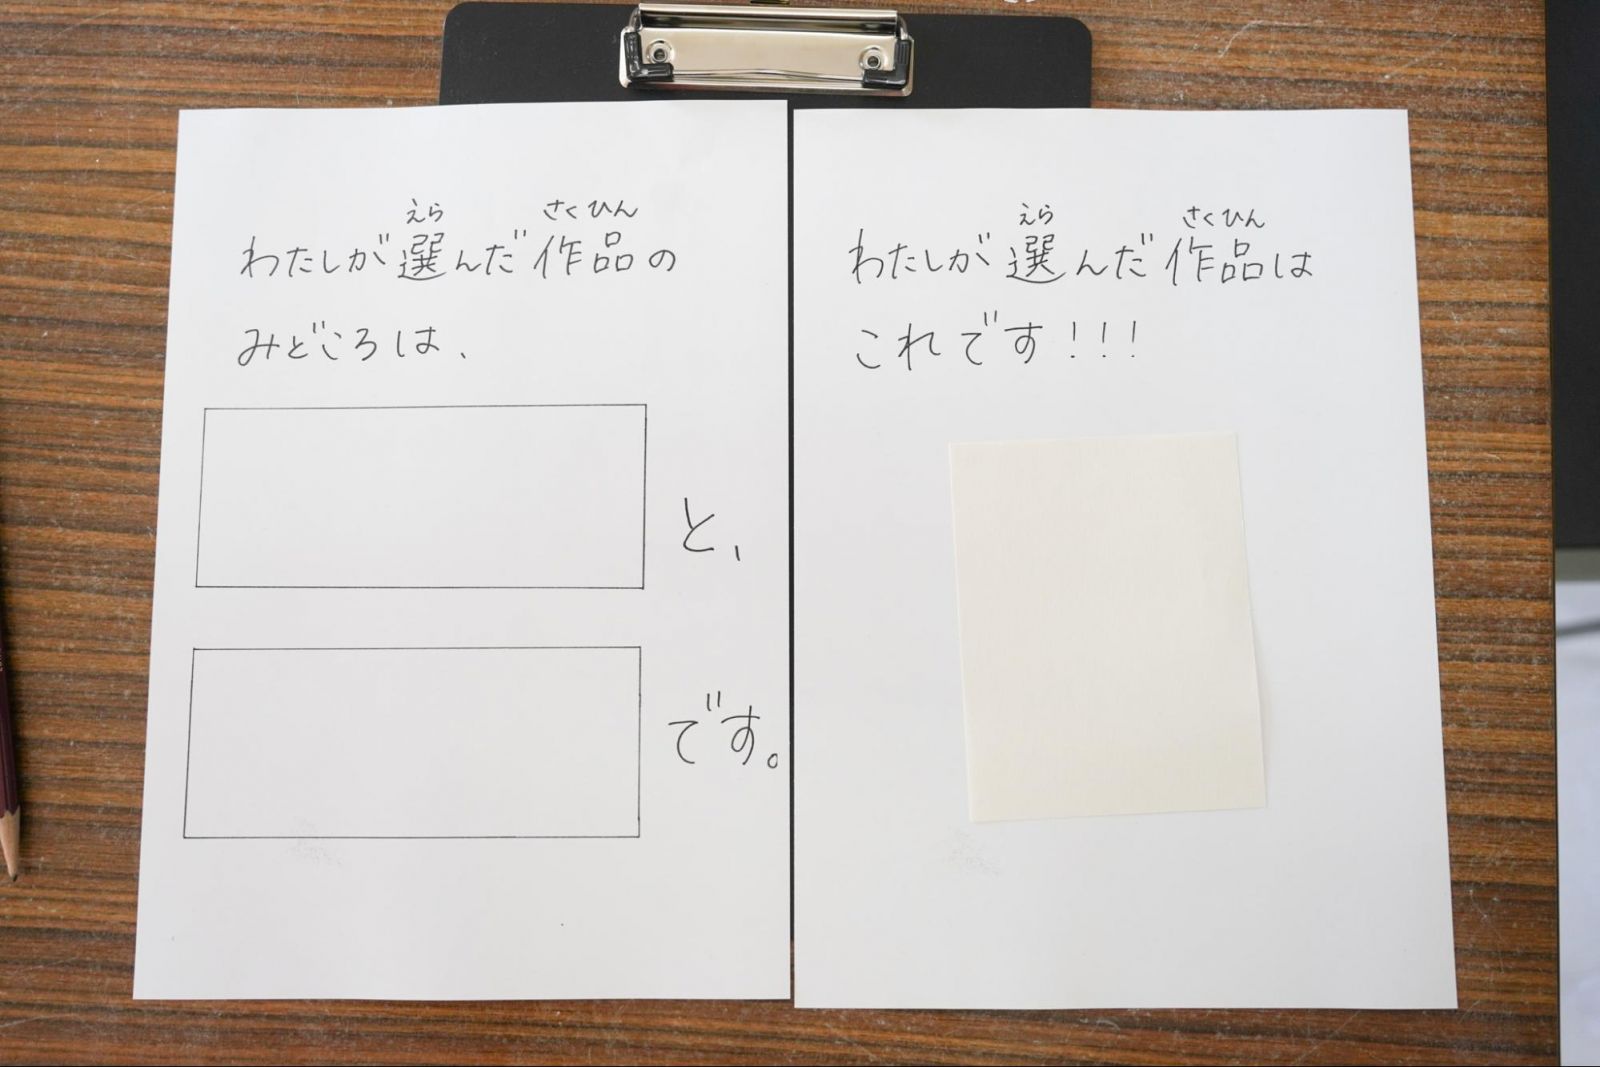 えら さくひん
わたしが選んだ作品の
みどころは、
と、
です。
えら さくひん
わたしが選んだ作品は
これです!!!